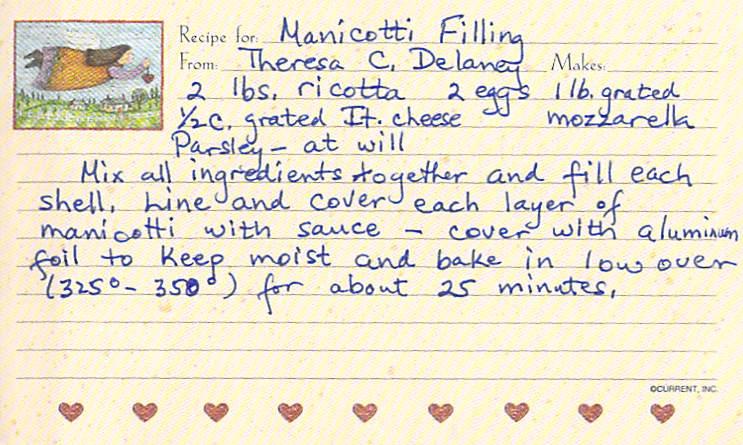 Recipe for: Manicotti Filling
From: Theresa C. Delaney Makes:
2 lbs. ricotta 2 eggs 1 lb. grated
1/2 c. grated It. cheese mozzarella
Parsley - at will
Mix all ingredients together and fill each
shell. Line and cover each layer of
manicotti with sauce - cover with aluminum
foil to keep moist and bake in low oven
(325° - 350°) for about 25 minutes.
©CURRENT, INC.